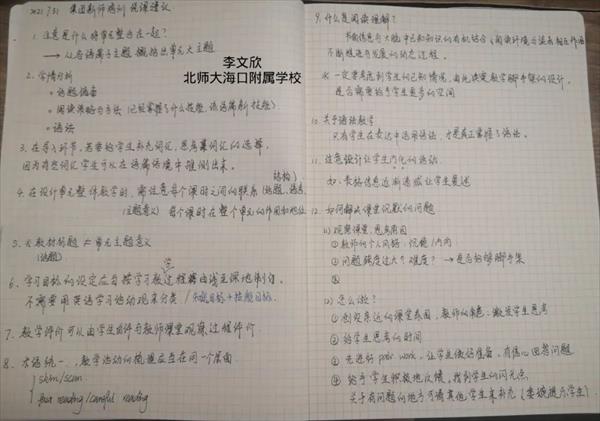 2021.7.31 集团新师培训 说课建议
李文欣
北师大海口附属学校
1. 注意是什么将单元整合在一起?
→ 从各语篇子主题 概括出单元大主题
2. 学情分析
• 话题储备
• 阅读策略与方法 (已经掌握了什么技能, 该语篇新技能)
• 语法
3. 在导入环节, 若要给学生补充词汇, 思考某词汇的选择,
因为有些词汇学生可以在语篇语境中猜测出来。
结构)
4. 在设计单元整体教学时, 需注意每个课时之间的联系 (话题, 语言,
(主题意义) 每个课时在整个单元的作用和地位
5. 大教材标题 ≠ 单元主题意义
(话题)
学
6. 学习目标的设定应当按学习教过程 由浅至深地制订,
不需要用英语学习活动观来分类 / 分成目标+技能目标
7. 教学评价可以由学生自评与教师课堂观察, 过程评价.
8. 术语统一, 教学活动的梳理应当在同一个层面.
skim/scan
fast reading/careful reading
9. 什么是阅读理解?
书面信息与大脑中已知知识的有机结合 (阅读环境与读者相互作用
不断推进与发展的动态过程.
※ 一定要考虑到学生的已知情况, 由此决定教学脚手架的设计,
是否需要给予学生更多的空间
10. 关于语法教学
只有学生在表达中运用语法, 才是真正掌握了语法.
11. 注意设计让学生内化的活动
如: 长段信息应渐渐成让学生复述
12. 如何解决课堂沉默的问题
(1) 观察课堂, 思考原因
① 教师的个人风格: 沉稳/内向
② 问题 跨度过大? 难度? → 是否给够脚手架
③
(2) 怎么做?
① 创设亲近的课堂氛围, 教师的角色: 激发学生思考
② 给学生思考的时间
③ 先进行pair work, 让学生做好准备, 有信心回答问题
④ 给予学生积极地反馈, 找到学生的闪光点
关于有问题的地方可请其他学生来补充 (委婉提示学生)